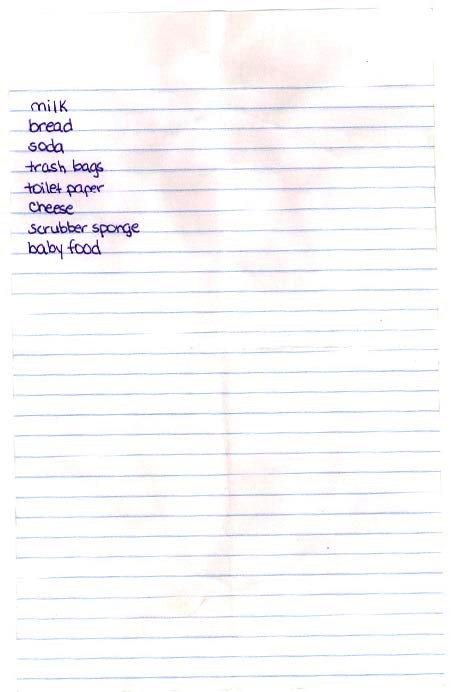 milk
bread
soda
trash bags
toilet paper
cheese
scrubber sponge
baby food